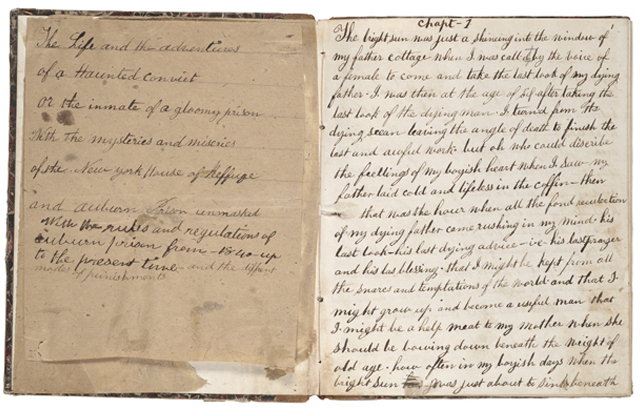 The Life and the adventures
of a Haunted Convict
Or the inmate of a gloomy prison
With the mysteries and miseries
of the New york House of Reffuge
and auburn Prison unmasked
With the rules and regulations of
auburn prison from 1840 up
to the present time - and the different
modes of punishments
Chapt-1
The bright sun was just a shineing into the window of
my father cottage when I was called by the voice of
a female to come and take the last look of my dying
father - I was then at the age of six after taking the
last look of the dying man - I turnd from the
dying scean leaving the angle of death to finish the
last and awful work - but oh who could discribe
the feetlings of my boyish heart when I saw my
father laid cold and lifeless in the coffin - then
that was the hour when all the fond recolection
of my dying father came rushing in my mind - his
last look - his last dying advice - i-e - his last prayer
and his las blessing - that I might be kept from all
the snares and temptations of the world - and that I
might grow up and become a useful man that
I might be a help meat to my Mother when she
should be bowing down beneath the weight of
old age - how often in my boyish days when the
bright sun was just about to sink beneath